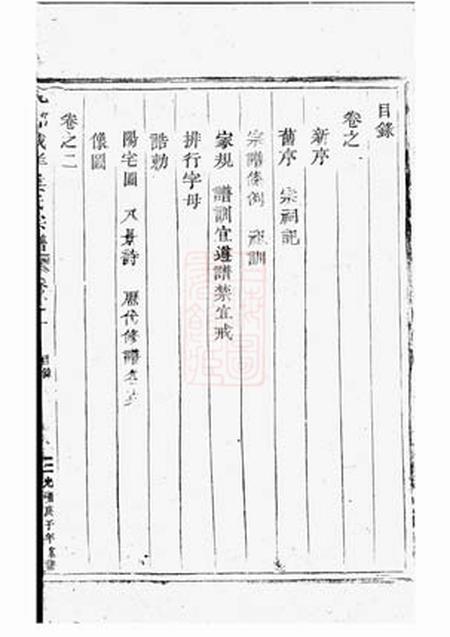 目錄
卷之
新序
舊序 宗祠記
宗譜條例 訓
家規 譜訓宜遵譜禁宜戒
排行字母
誥勅
陽宅圖 八景詩 歷代修譜
像圖
卷之二
宗譜
目錄
光緒庚子年